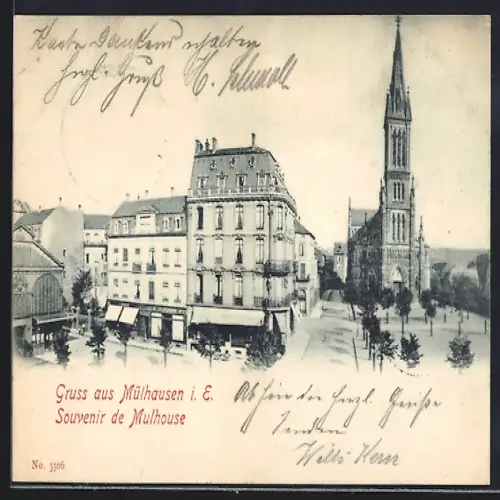 Karte Dankend erhalten
Herzl. Gruß H. Schmoll
Gruss aus Mülhausen i. E.
Souvenir de Mulhouse
der herzl. Grüße
senden
Willi Kern
No. 3506